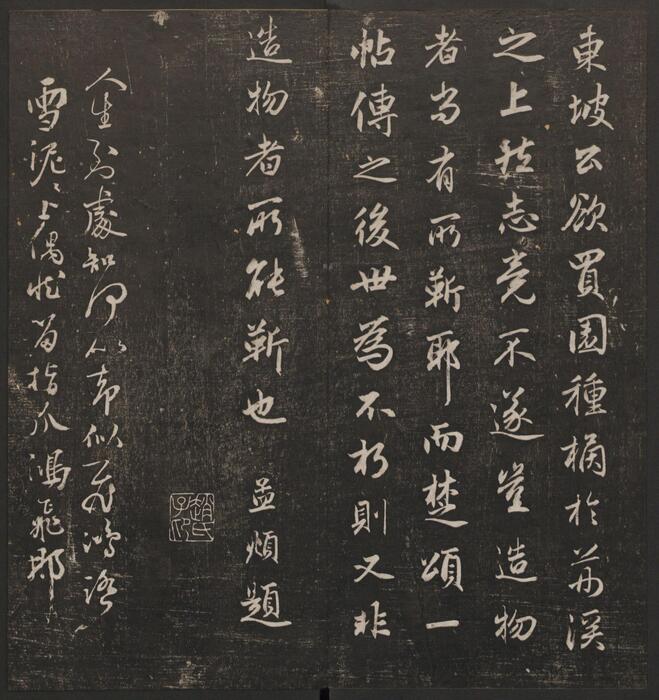 東坡公欲買園種橘於荆溪
之上然志竟不遂豈造物
者尚有所靳耶而楚頌一
帖傳之後世為不朽則又非
造物者所能靳也 孟頫題
趙氏子昂
人生到處知何似却似飛鴻踏
雪泥泥上偶然留指爪鴻飛那